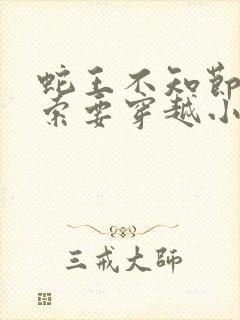 蛇王不知节
索要穿越小
三戒大师